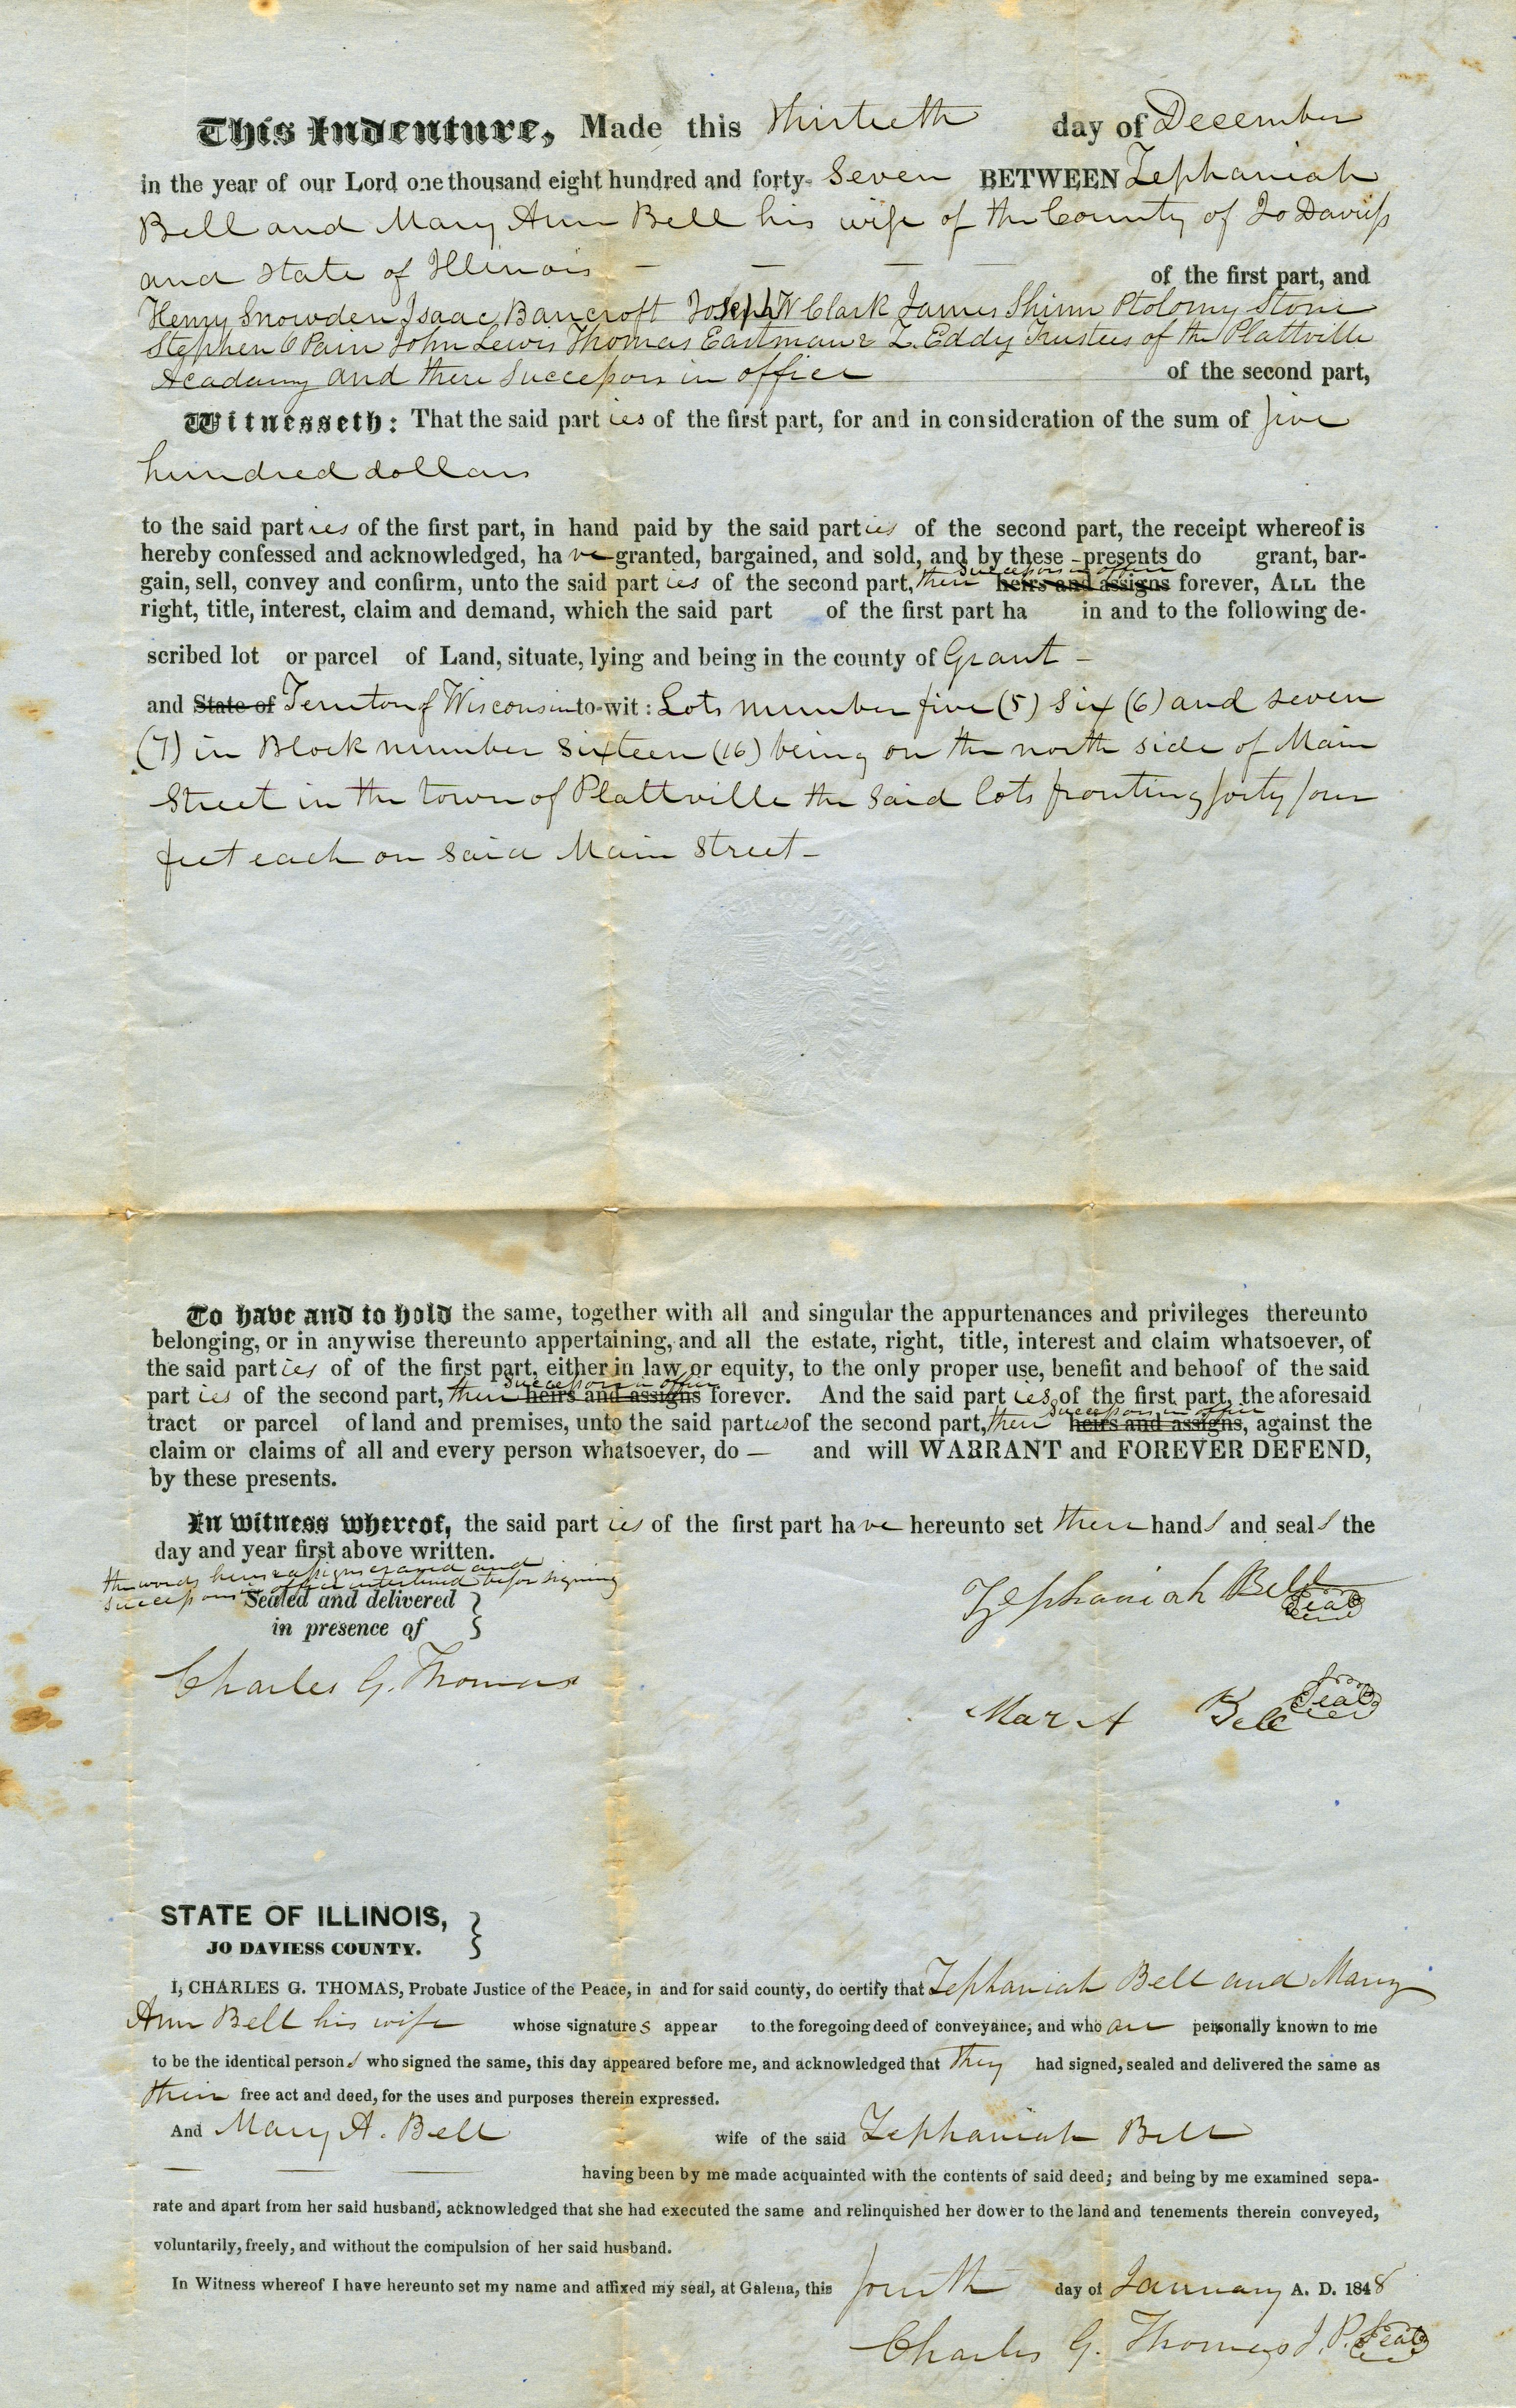 This Indenture, Made this Thirtieth day of December
in the year of our Lord one thousand eight hundred and forty- Seven BETWEEN Zephaniah
Bell and Mary Ann Bell his wife of the County of Jo Daviess
and State of Illinois — — — — of the first part, and
Henry Snowden Isaac Bancroft Joseph W Clark James Shinn Ptolomy Stone
Stephen O Pain John Lewis Thomas Eastman & L. Eddy Trustees of the Plattville
Academy and there Successors in office of the second part,
Witnesseth: That the said part ies of the first part, for and in consideration of the sum of five
hundred dollars
to the said part ies of the first part, in hand paid by the said part ies of the second part, the receipt whereof is
hereby confessed and acknowledged, ha ve granted, bargained, and sold, and by these presents do grant, bar-
successors in office
gain, sell, convey and confirm, unto the said part ies of the second part, their heirs and assigns forever, ALL the
right, title, interest, claim and demand, which the said part of the first part ha in and to the following de-
scribed lot or parcel of Land, situate, lying and being in the county of Grant –
and State of Territory of Wisconsin to-wit: Lots number five (5) Six (6) and seven
(7) in Block number Sixteen (16) being on the north side of Main
Street in the town of Plattville the said lots fronting forty four
feet each on said Main Street –
To have and to hold the same, together with all and singular the appurtenances and privileges thereunto
belonging, or in anywise thereunto appertaining, and all the estate, right, title, interest and claim whatsoever, of
the said part ies of of the first part, either in law or equity, to the only proper use, benefit and behoof of the said
successors in office
part ies of the second part, their heirs and assigns forever. And the said part ies of the first part, the aforesaid
successors in office
tract or parcel of land and premises, unto the said part ies of the second part, their heirs and assigns, against the
claim or claims of all and every person whatsoever, do — and will WARRANT and FOREVER DEFEND,
by these presents.
In witness whereof, the said part ies of the first part ha ve hereunto set their hand s and seal s the
day and year first above written.
the words heirs & assigns erased and
successors in office interlined before signing
Sealed and delivered
in presence of
Zephaniah Bell Seal
Charles G. Thomas
Mar A Bell Seal
STATE OF ILLINOIS,
JO DAVIESS COUNTY.
I, CHARLES G. THOMAS, Probate Justice of the Peace, in and for said county, do certify that Zephaniah Bell and Mary
Ann Bell his wife whose signature s appear to the foregoing deed of conveyance, and who are personally known to me
to be the identical person s who signed the same, this day appeared before me, and acknowledged that they had signed, sealed and delivered the same as
their free act and deed, for the uses and purposes therein expressed.
And Mary A. Bell wife of the said Zephaniah Bell
— — — having been by me made acquainted with the contents of said deed; and being by me examined sepa-
rate and apart from her said husband, acknowledged that she had executed the same and relinquished her dower to the land and tenements therein conveyed,
voluntarily, freely, and without the compulsion of her said husband.
In Witness whereof I have hereunto set my name and affixed my seal, at Galena, this fourth day of January A. D. 1848
Charles G. Thomas J. P. Seal